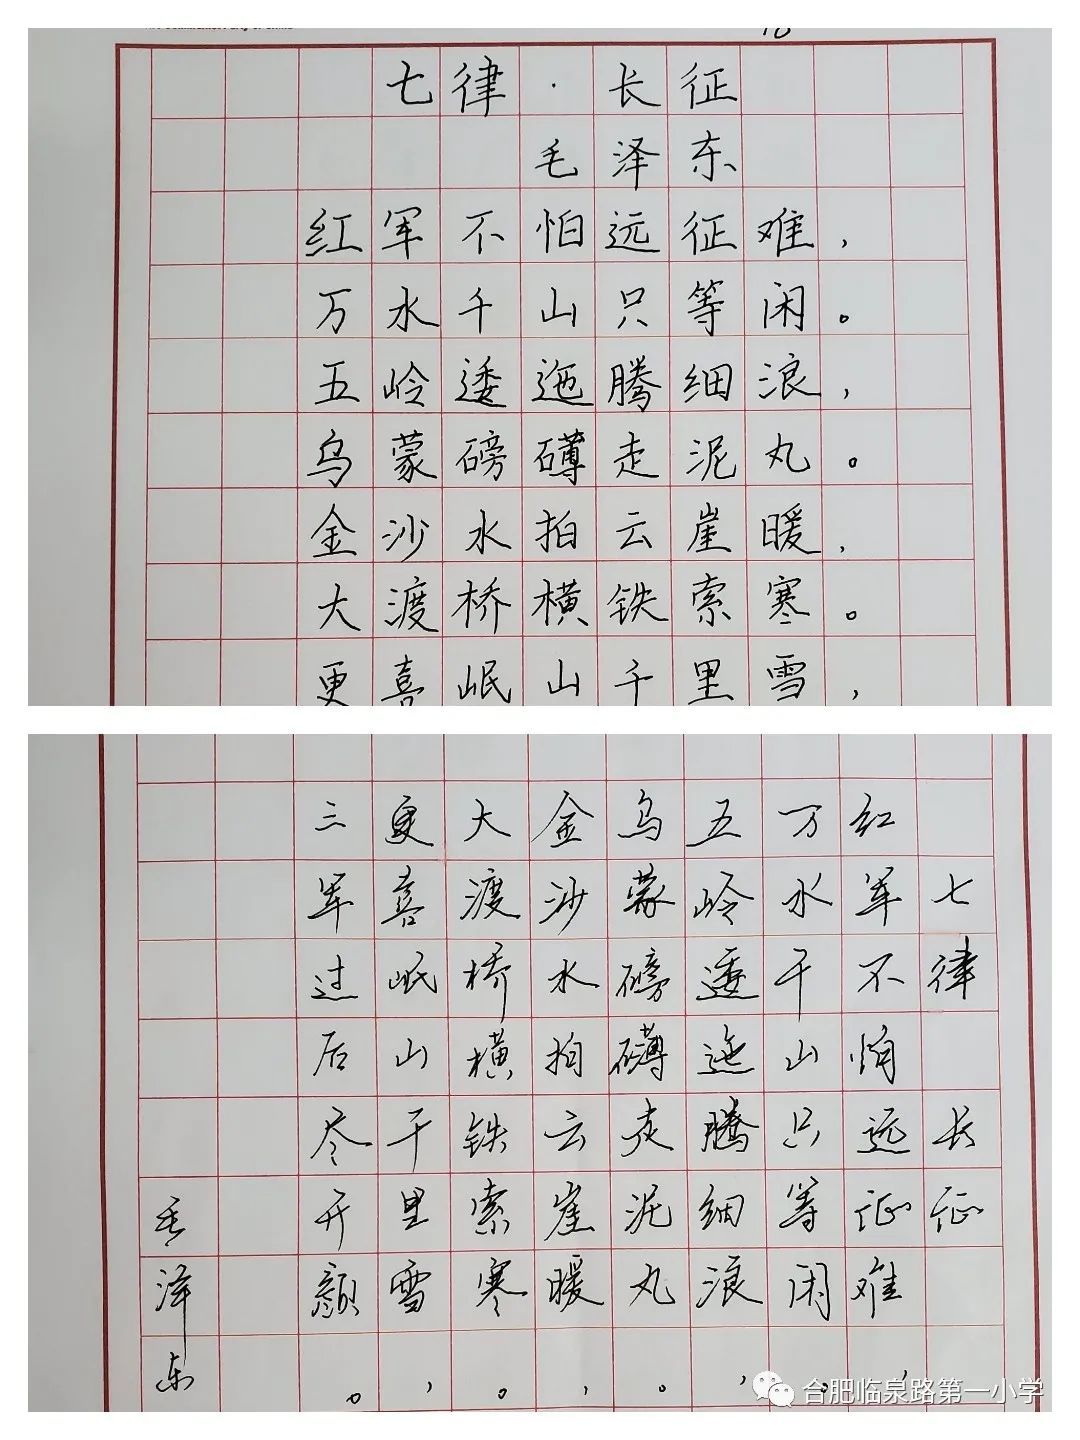 七律·长征
毛泽东
红军不怕远征难，
万水千山只等闲。
五岭逶迤腾细浪，
乌蒙磅礴走泥丸。
金沙水拍云崖暖，
大渡桥横铁索寒。
更喜岷山千里雪，
七律 长征
红军不怕远征难，
万水千山只等闲。
五岭逶迤腾细浪，
乌蒙磅礴走泥丸。
金沙水拍云崖暖，
大渡桥横铁索寒。
更喜岷山千里雪，
三军过后尽开颜。
毛泽东
合肥临泉路第一小学